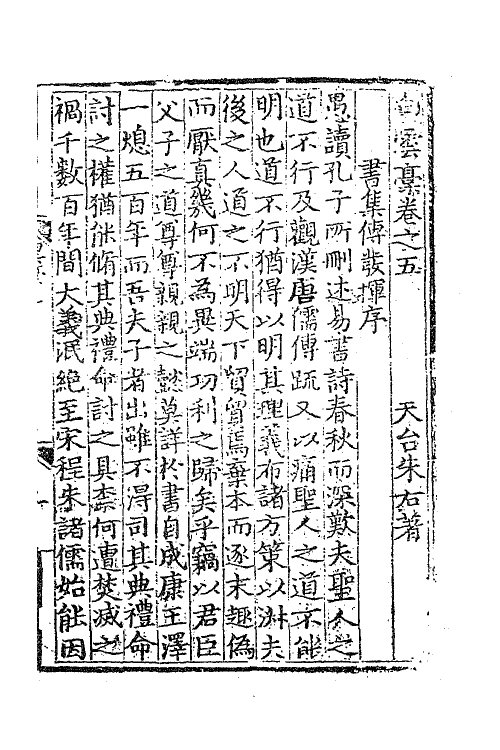 白雲稾卷之五
天台朱右著
書集傳發揮序
愚讀孔子所刪述易書詩春秋而深歎夫聖人之
道不行及觀漢唐儒傳疏又以痛聖人之道不能
明也道不行猶得以明其理義布諸方策以淑夫
後之人道之不明天下貿貿焉棄本而逐末趣偽
而厭真幾何不為異端功利之歸矣乎竊以君臣
父子之道尊尊親親之懿莫詳於書自成康王澤
一熄五百年而吾夫子者出雖不得司其典禮命
討之權猶能脩其典禮命討之具柰何遭焚滅之
禍千數百年間大義泯絶至宋程朱諸儒始能因